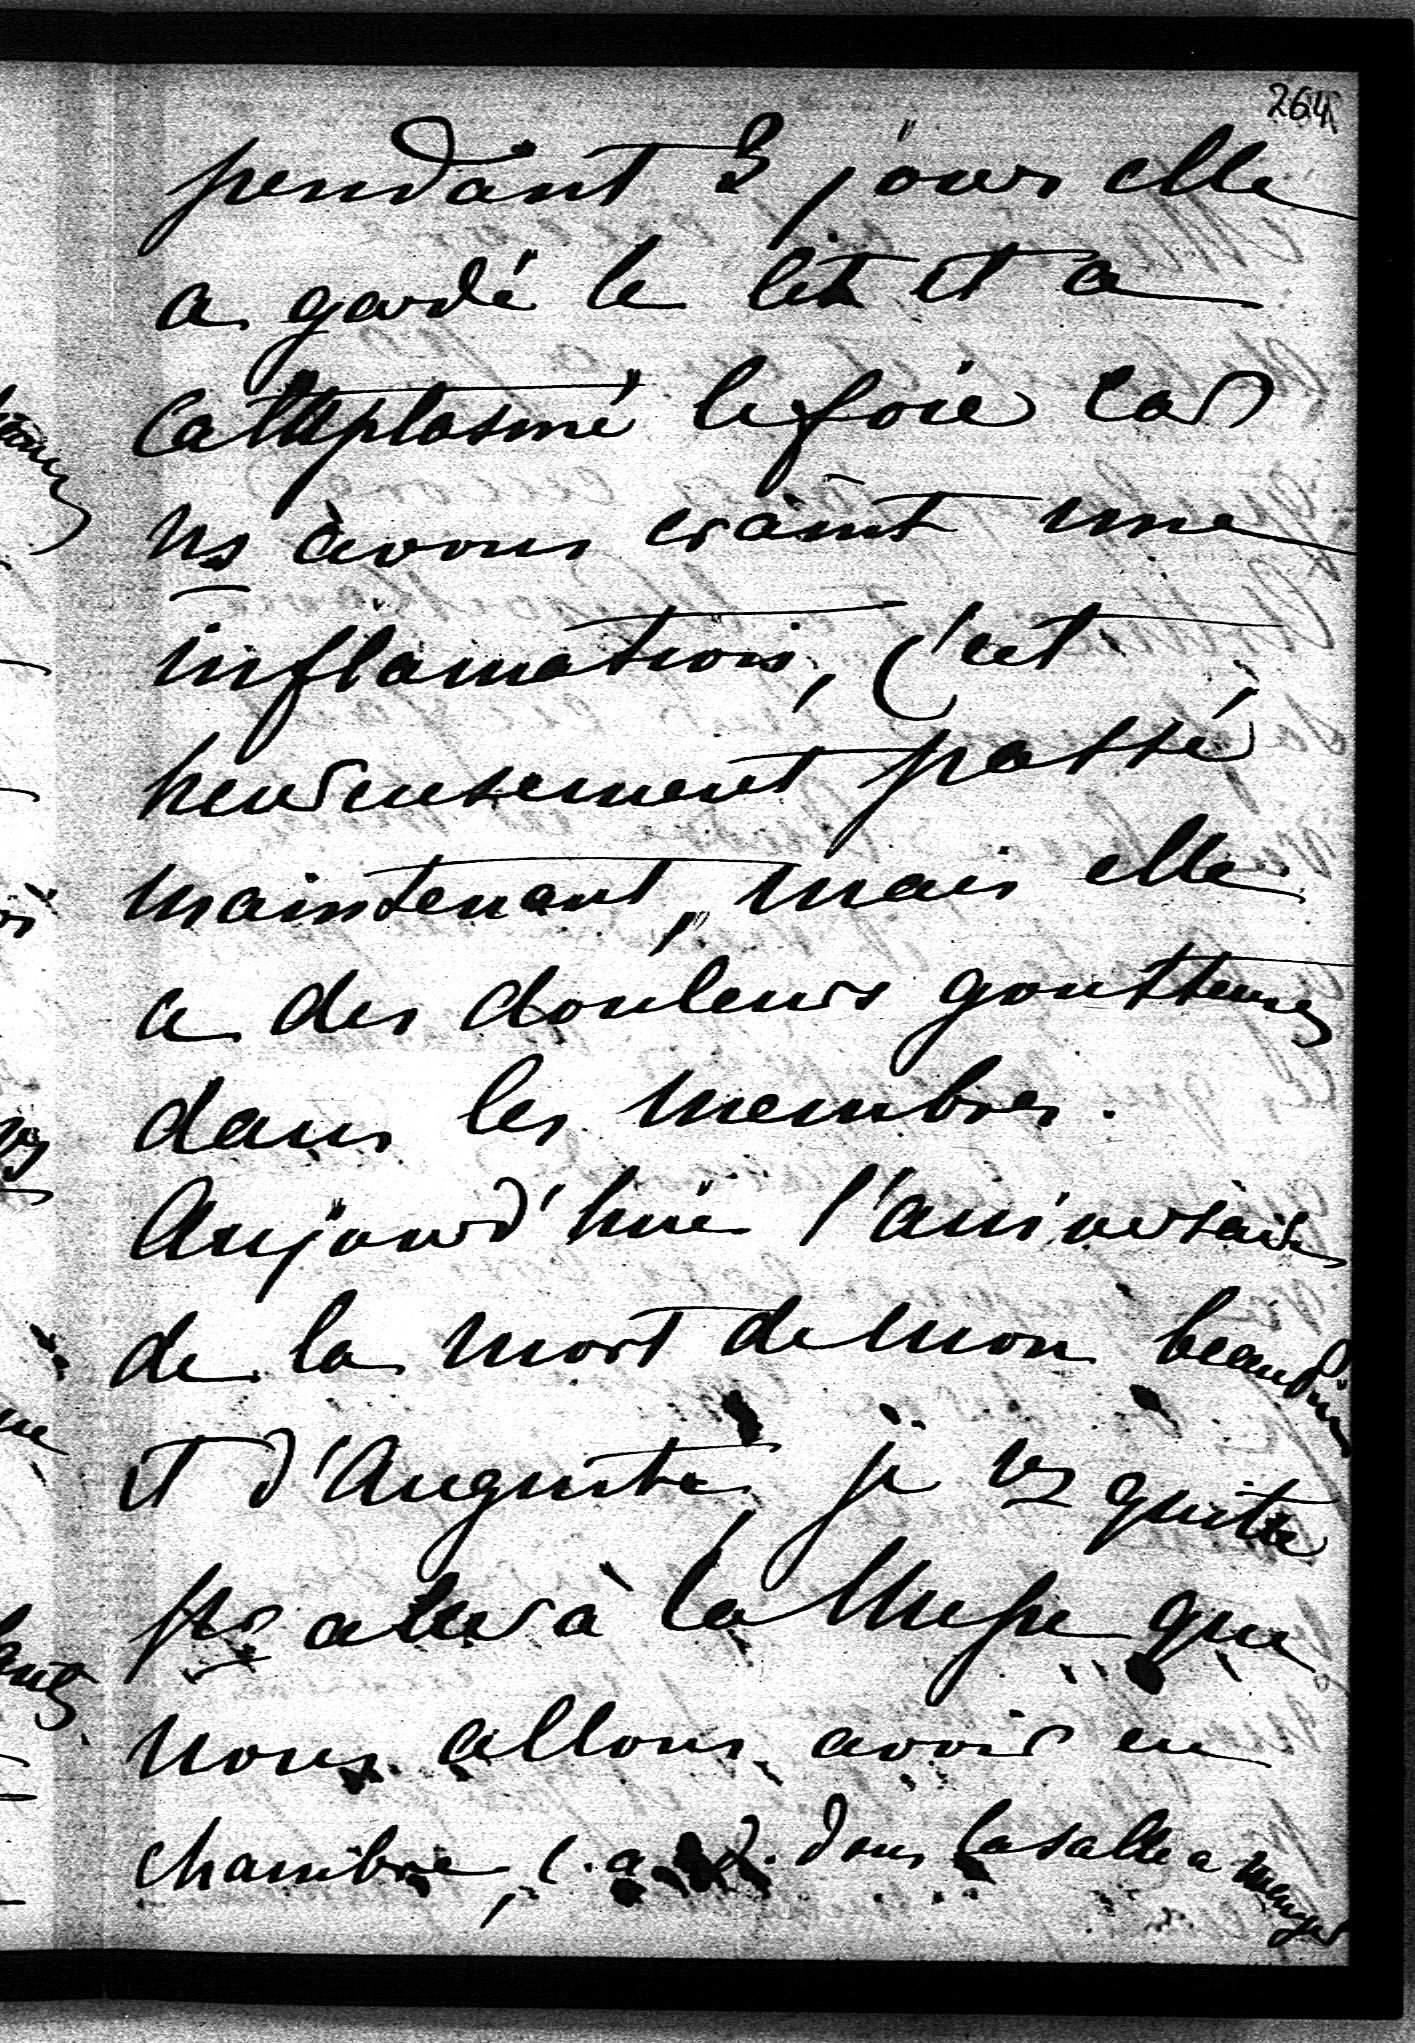 264
pendant 3 jours elle
a gardé le lit et a
cattaplasmé le foie car
ns avons craint une
inflamation, c'est
heureusement passé
maintenant, mais elle
a des douleurs goutteuses
dans les membres.
Aujourd'hui l'aniversaire
de la mort de mon beau
et d'Auguste, je vs quitte
pr aller à la Messe que
nous allons avoir en
chambre, c. a. d. dans la salle a manger